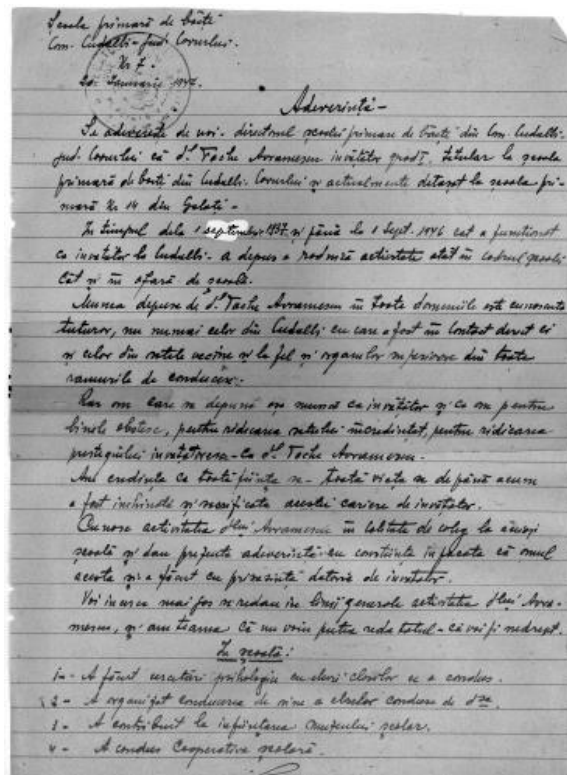 Școala primară de băeți
Com. Cudalbi - jud. Covurlui.
Nr 7.
20 Ianuarie 1947.
Adeverință -
Se adeverește de noi - directorul școalei primare de băeți din Com. Cudalbi,
jud. Covurlui că dl. Tache Avramescu învățător grad I, titular la școala
primară de băeți din Cudalbi - Covurlui și actualmente detașat la școala pri-
mară Nr 14 din Galați -
În timpul dela 1 septembrie 1937 și până la 1 Sept. 1946 cât a funcționat
ca învățător la Cudalbi - a depus o rodnică activitate atât în cadrul școalei
cât și în afară de școală.
Munca depusă de dl. Tache Avramescu în toate domeniile este cunoscută
tuturor, nu numai celor din Cudalbi cu care a fost în contact direct ci
și celor din satele vecine și la fel și organelor superioare din toate
ramurile de conducere.
Rar om care să depună o muncă ca învățător și ca om pentru
binele obștesc, pentru ridicarea satului încredințat, pentru ridicarea
prestigiului învățătoresc - Ca dl. Tache Avramescu.
Am credința că toată ființa sa - toată viața sa de până acum
a fost închinată și sacrificată acestei cariere de învățător.
Cunosc activitatea dlui Avramescu în calitate de coleg la aceiași
școală și dau prezenta adeverință cu conștiința împăcată că omul
acesta și-a făcut cu prisosință datoria de învățător.
Voi încerca mai jos să redau în linii generale activitatea dlui Avra-
mescu, și am teama că nu voiu putea reda totul - că voi fi nedrept.
În școală:
1 - A făcut cercetări psihologice cu elevii claselor ce a condus.
2 - A organizat conducerea de sine a claselor conduse de dsa.
3 - A contribuit la înființarea muzeului școlar.
4 - A condus Cooperativa școlară.